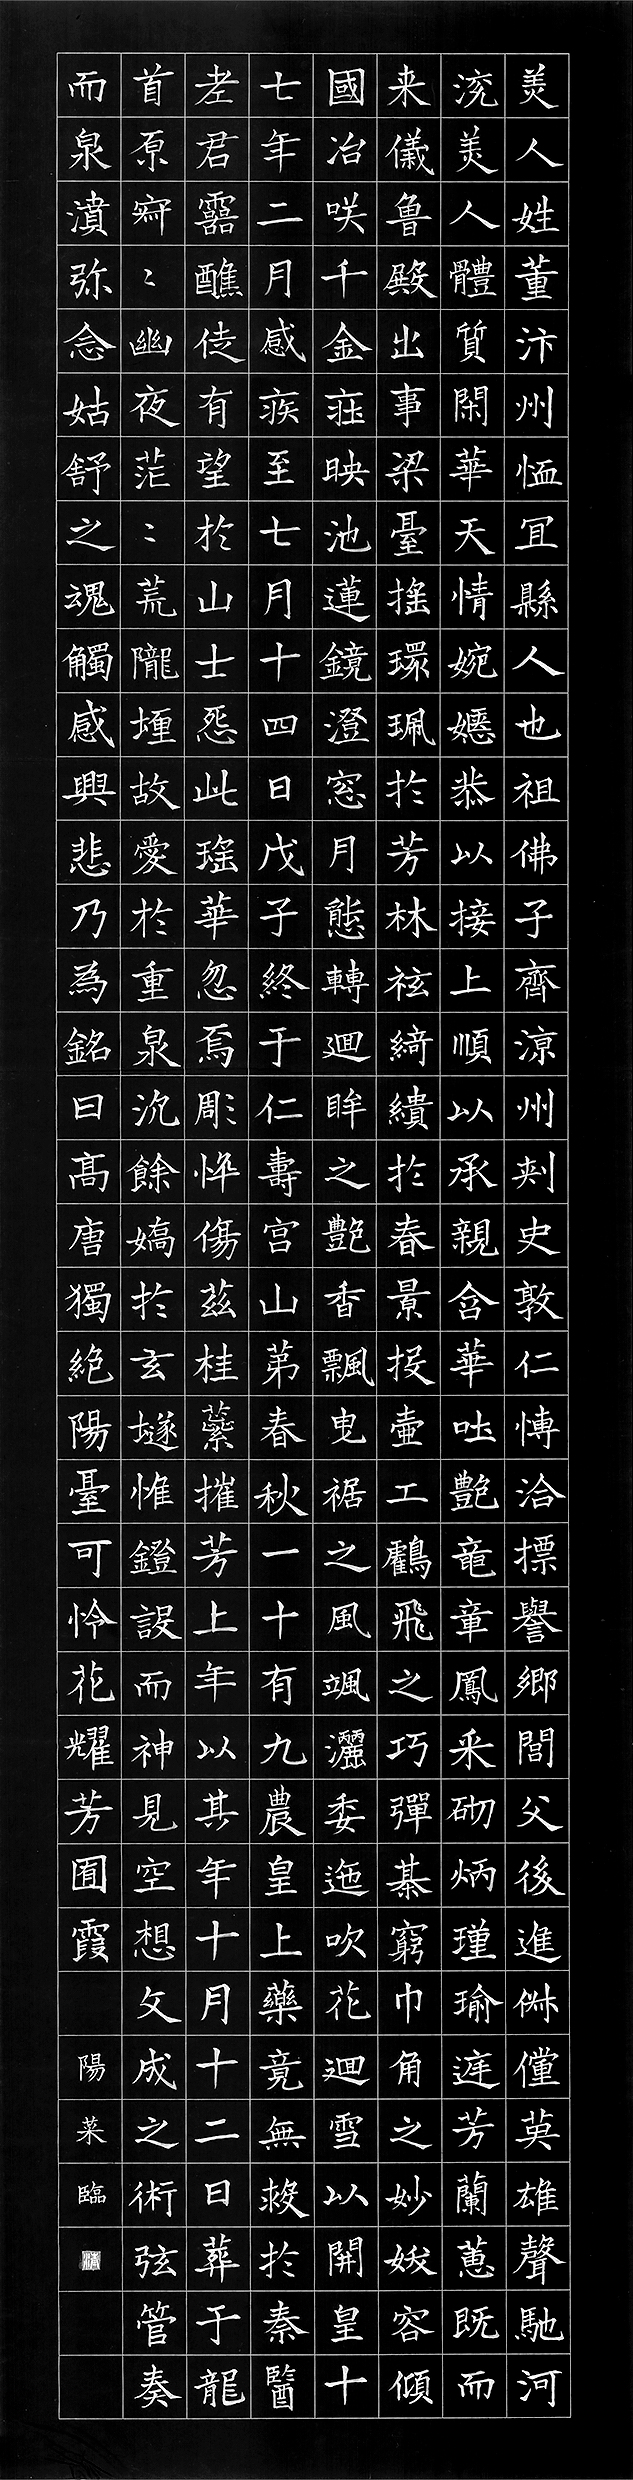 美人姓董汴州恤冝縣人也祖佛子齊涼州刾史敦仁慱洽摽譽鄉閭父後進俶儻英雄聲馳河
流美人體質閑華天情婉嫕恭以接上順以承親含華吐艷竜章鳳采砌炳瑾瑜庭芳蘭蕙既而
来儀魯殿出事梁臺搖環珮扵芳林袨綺繢扵春景投壷工鸖飛之巧彈棊窮巾角之妙妭容傾
國冶咲千金莊映池蓮鏡澄窓月態轉廻眸之艷香飄曳裾之風颯灑委迤吹花廻雪以開皇十
七年二月感疾至七月十四日戊子終于仁壽宮山苐春秋一十有九農皇上藥竟無救扵秦醫
老君靈醮徒有望扵山士怨此瑤華忽焉彫悴傷茲桂蘂摧芳上年以其年十月十二日葬于龍
首原寂〻幽夜茫〻荒隴堙故愛扵重泉沉餘嬌扵玄墜惟鐙設而神見空想文成之術弦管奏
而泉濆弥念姑舒之魂觸感興悲乃為銘曰髙唐獨絕陽臺可怜花耀芳囿霞
陽菜臨